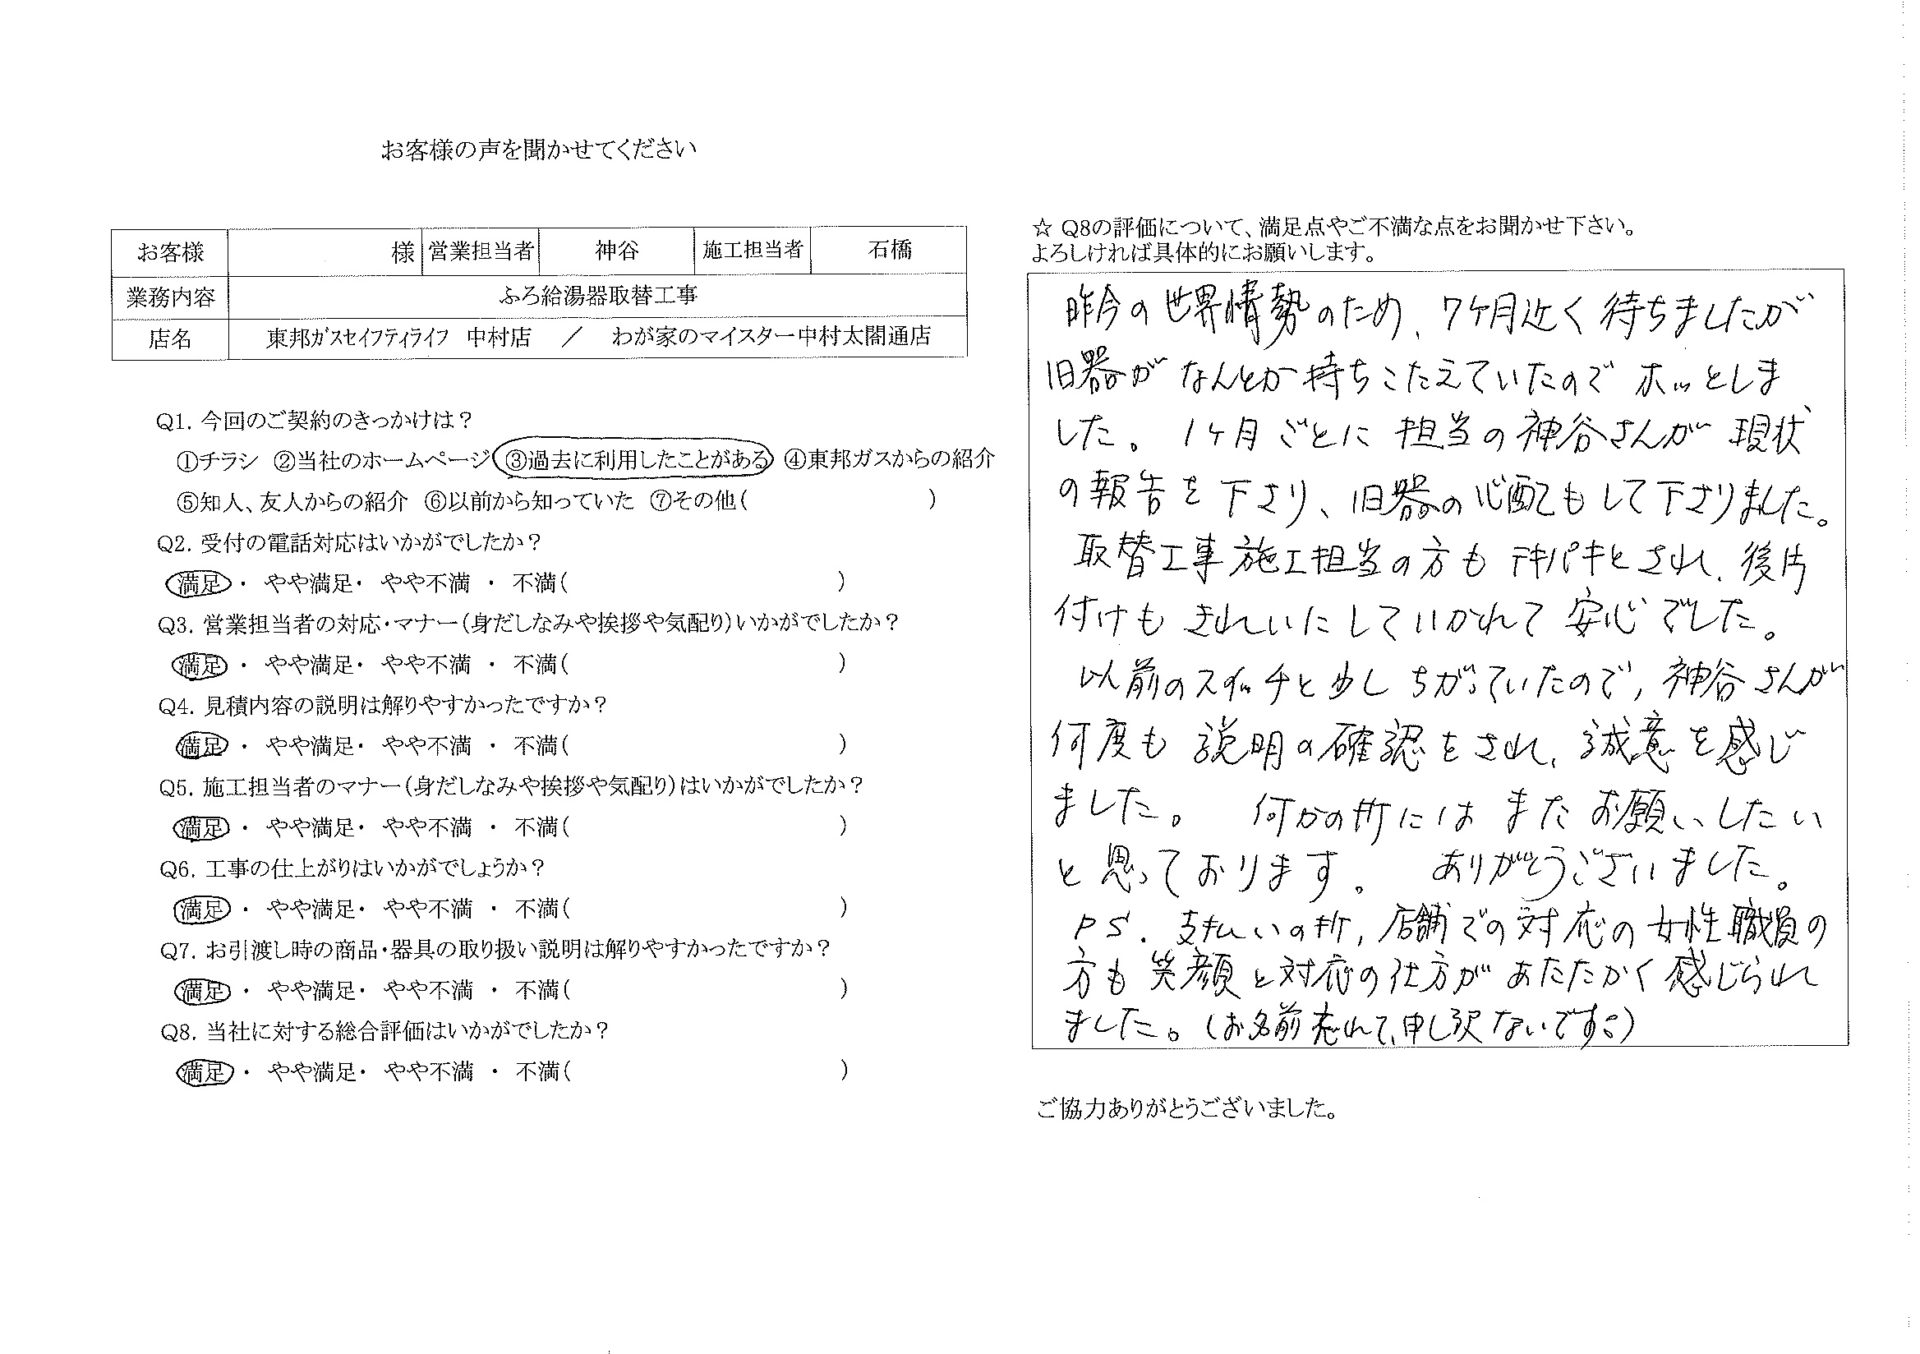 お客様の声を聞かせてください
お客様 様 営業担当者 神谷 施工担当者 石橋
業務内容 ふろ給湯器取替工事
店名 東邦ガスセイフティライフ 中村店 / わが家のマイスター中村太閤通店
Q1. 今回のご契約のきっかけは？
①チラシ ②当社のホームページ ③過去に利用したことがある ④東邦ガスからの紹介
⑤知人、友人からの紹介 ⑥以前から知っていた ⑦その他( )
Q2. 受付の電話対応はいかがでしたか？
満足・ やや満足・ やや不満 ・ 不満( )
Q3. 営業担当者の対応・マナー(身だしなみや挨拶や気配り)いかがでしたか？
満足・ やや満足・ やや不満 ・ 不満( )
Q4. 見積内容の説明は解りやすかったですか？
満足・ やや満足・ やや不満 ・ 不満( )
Q5. 施工担当者のマナー(身だしなみや挨拶や気配り)はいかがでしたか？
満足・ やや満足・ やや不満 ・ 不満( )
Q6. 工事の仕上がりはいかがでしょうか？
満足・ やや満足・ やや不満 ・ 不満( )
Q7. お引渡し時の商品・器具の取り扱い説明は解りやすかったですか？
満足・ やや満足・ やや不満 ・ 不満( )
Q8. 当社に対する総合評価はいかがでしたか？
満足・ やや満足・ やや不満 ・ 不満( )
☆ Q8の評価について、満足点やご不満な点をお聞かせ下さい。
よろしければ具体的にお願いします。
昨今の世界情勢のため、7ケ月近く待ちましたが
旧器がなんとか持ちこたえていたのでホッとしま
した。1ケ月ごとに担当の神谷さんが現状
の報告を下さり、旧器の心配もして下さりました。
取替工事施工担当の方もテキパキとされ、後片
付けもきれいにしていかれて安心でした。
以前のスイッチと少しちがっていたので、神谷さんが
何度も説明の確認をされ、誠意を感じ
ました。 何かの折にはまたお願いしたい
と思っております。 ありがとうございました。
PS. 支払いの折、店舗での対応の女性職員の
方も笑顔と対応の仕方があたたかく感じられ
ました。(お名前忘れて、申し訳ないです。)
ご協力ありがとうございました。